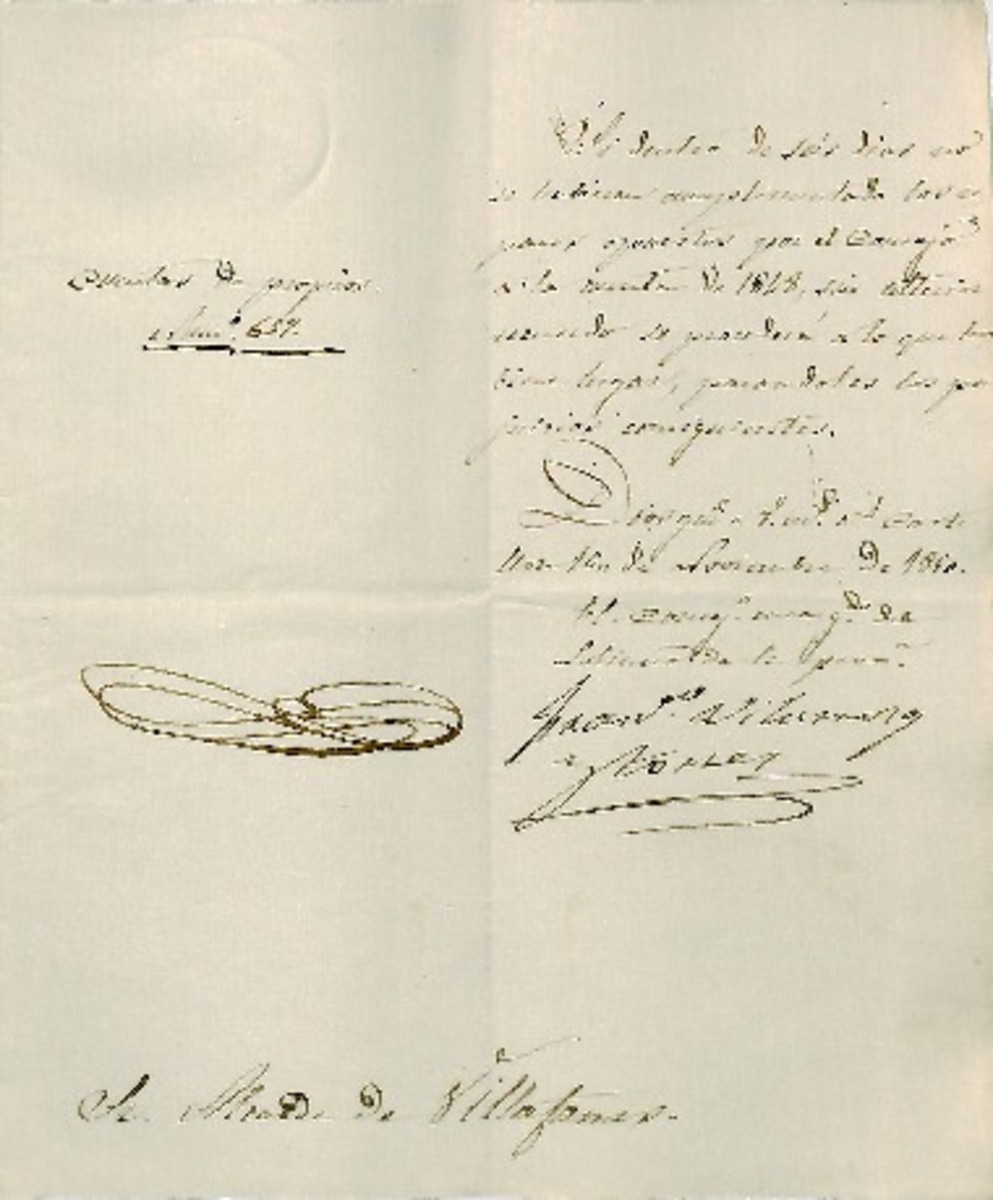 Cuentas de propios.
Num.º 657.
Si dentro de seis dias no
se hubieran cumplimentado los re
paros opuestos por el Consejo
a la cuenta de 1848, sin ulterior
recuerdo se procederá a lo que hu
biere lugar, parandoles los per
juicios consiguientes.
Dios gue. a V. m.s a.s Caste
llon de Noviembre de 1850.
El Consej.º encarg.do de
la prov.ª
Fran.co
Sr. Alcalde de Villafames.